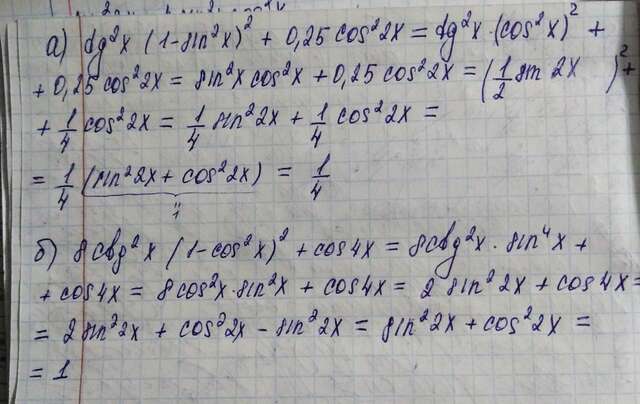 а) tg²x (1-sin²x)² + 0,25 cos²2x = tg²x·(cos²x)² +
+ 0,25 cos²2x = sin²x cos²x + 0,25 cos²2x = (1/2 sin 2x)² +
+ 1/4 cos²2x = 1/4 sin²2x + 1/4 cos²2x =
= 1/4 (sin²2x + cos²2x) = 1/4
1
б) 8ctg²x (1-cos²x)² + cos4x = 8ctg²x · sin⁴x +
+ cos4x = 8cos²x·sin²x + cos4x = 2 sin²2x + cos4x =
= 2sin²2x + cos²2x - sin²2x = sin²2x + cos²2x =
= 1